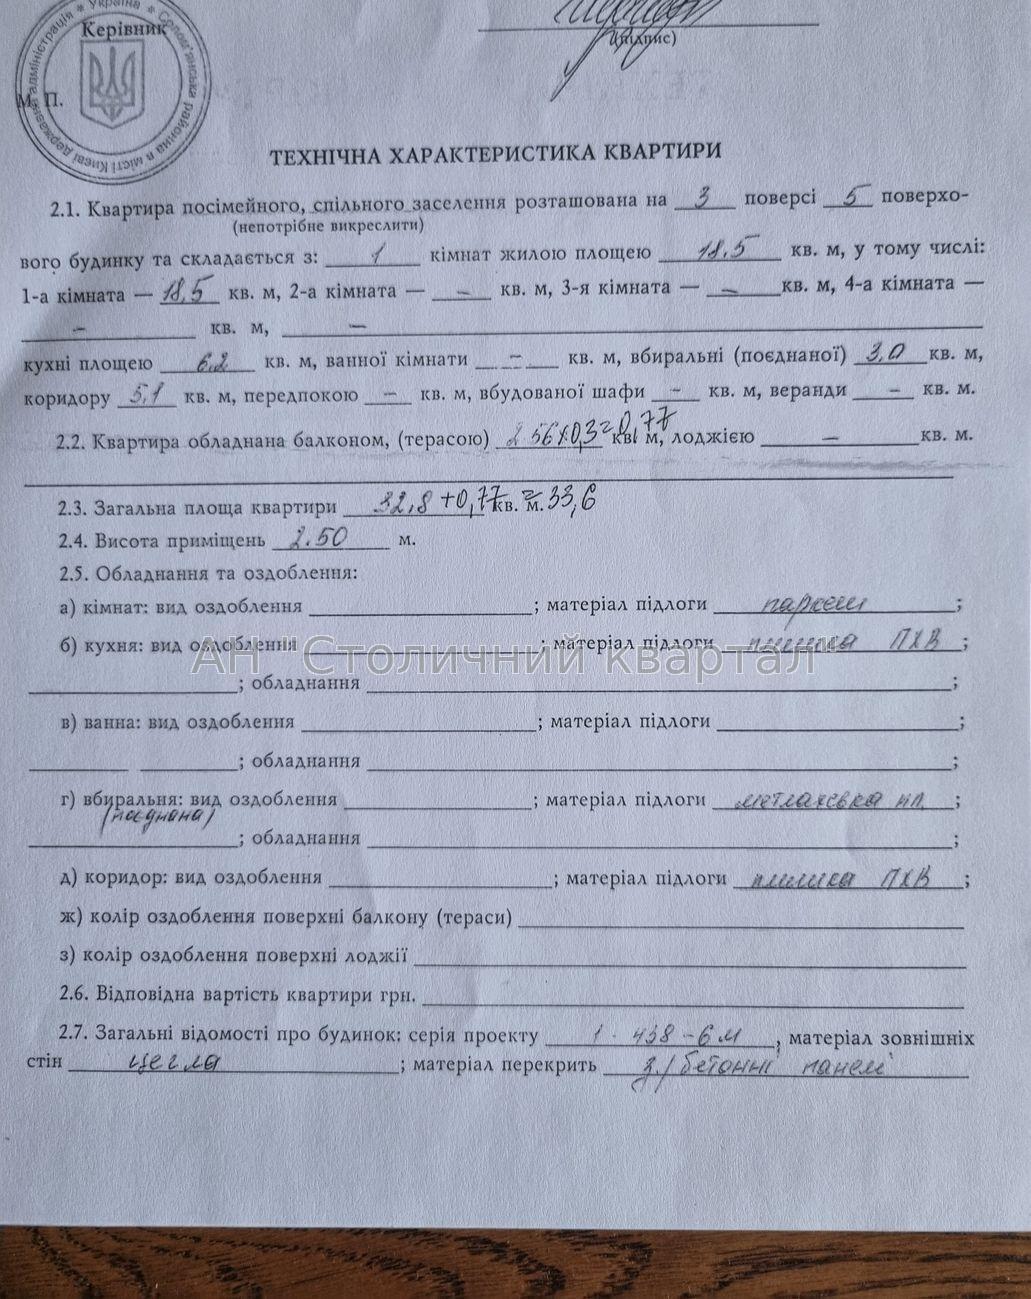 Україна * Солом'янська районна в місті Києві державна адміністрація *
Керівник
(підпис)
М. П.
ТЕХНІЧНА ХАРАКТЕРИСТИКА КВАРТИРИ
2.1. Квартира посімейного, спільного заселення розташована на 3 поверсі 5 поверхо-
(непотрібне викреслити)
вого будинку та складається з: 1 кімнат жилою площею 18.5 кв. м, у тому числі:
1-а кімната — 18,5 кв. м, 2-а кімната — – кв. м, 3-я кімната — – кв. м, 4-а кімната —
– кв. м, –
кухні площею 6.2 кв. м, ванної кімнати – кв. м, вбиральні (поєднаної) 3,0 кв. м,
коридору 5,1 кв. м, передпокою – кв. м, вбудованої шафи – кв. м, веранди – кв. м.
2.2. Квартира обладнана балконом, (терасою) 2 56x0,3=0,77 кв. м, лоджією – кв. м.
2.3. Загальна площа квартири 32,8 +0,77 кв. м. = 33,6
2.4. Висота приміщень 2.50 м.
2.5. Обладнання та оздоблення:
а) кімнат: вид оздоблення ; матеріал підлоги паркет ;
б) кухня: вид оздоблення ; матеріал підлоги плитка ПХВ ;
АН "Столичний квартал
; обладнання ;
в) ванна: вид оздоблення ; матеріал підлоги ;
; обладнання ;
г) вбиральня: вид оздоблення ; матеріал підлоги метлахська пл. ;
(поєднана)
; обладнання ;
д) коридор: вид оздоблення ; матеріал підлоги плитка ПХВ ;
ж) колір оздоблення поверхні балкону (тераси)
з) колір оздоблення поверхні лоджії
2.6. Відповідна вартість квартири грн.
2.7. Загальні відомості про будинок: серія проекту 1-438-6м, матеріал зовнішніх
стін цегла ; матеріал перекрить з/бетонні панелі